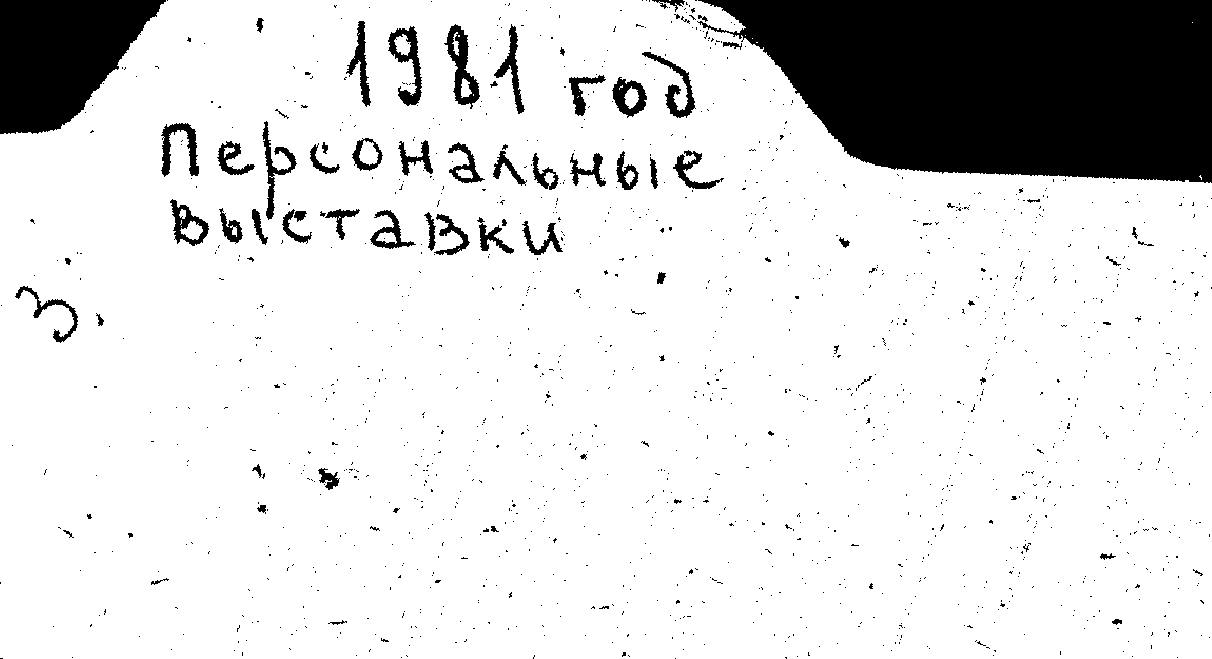 1981 год
Персональные
выставки
З.